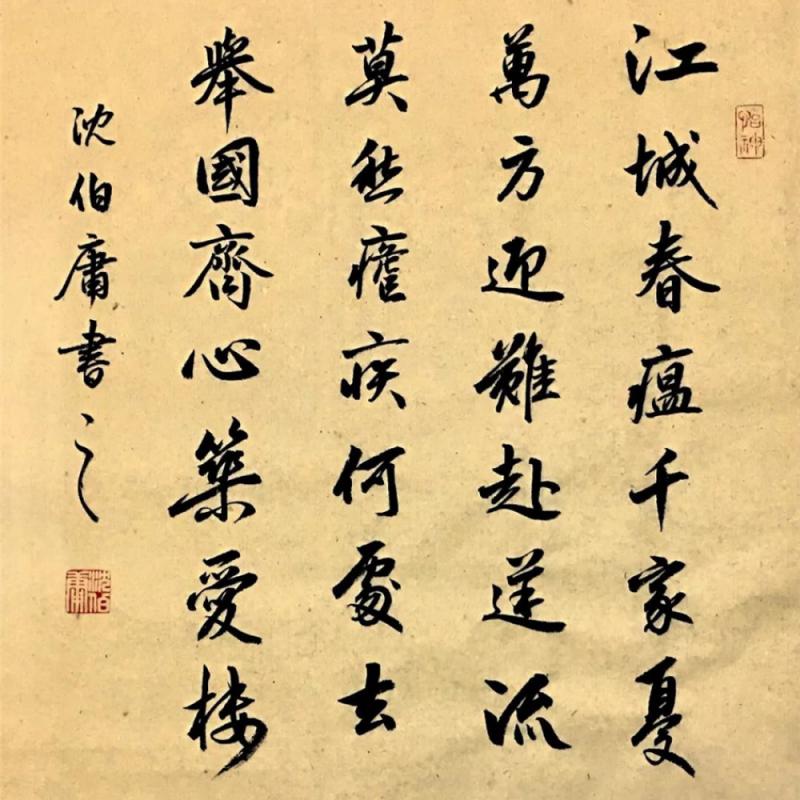 江城春瘟千家憂
萬方迎難赴逆流
莫愁瘧疾何處去
舉國齊心築愛樓
沈伯庸書之
沈伯庸